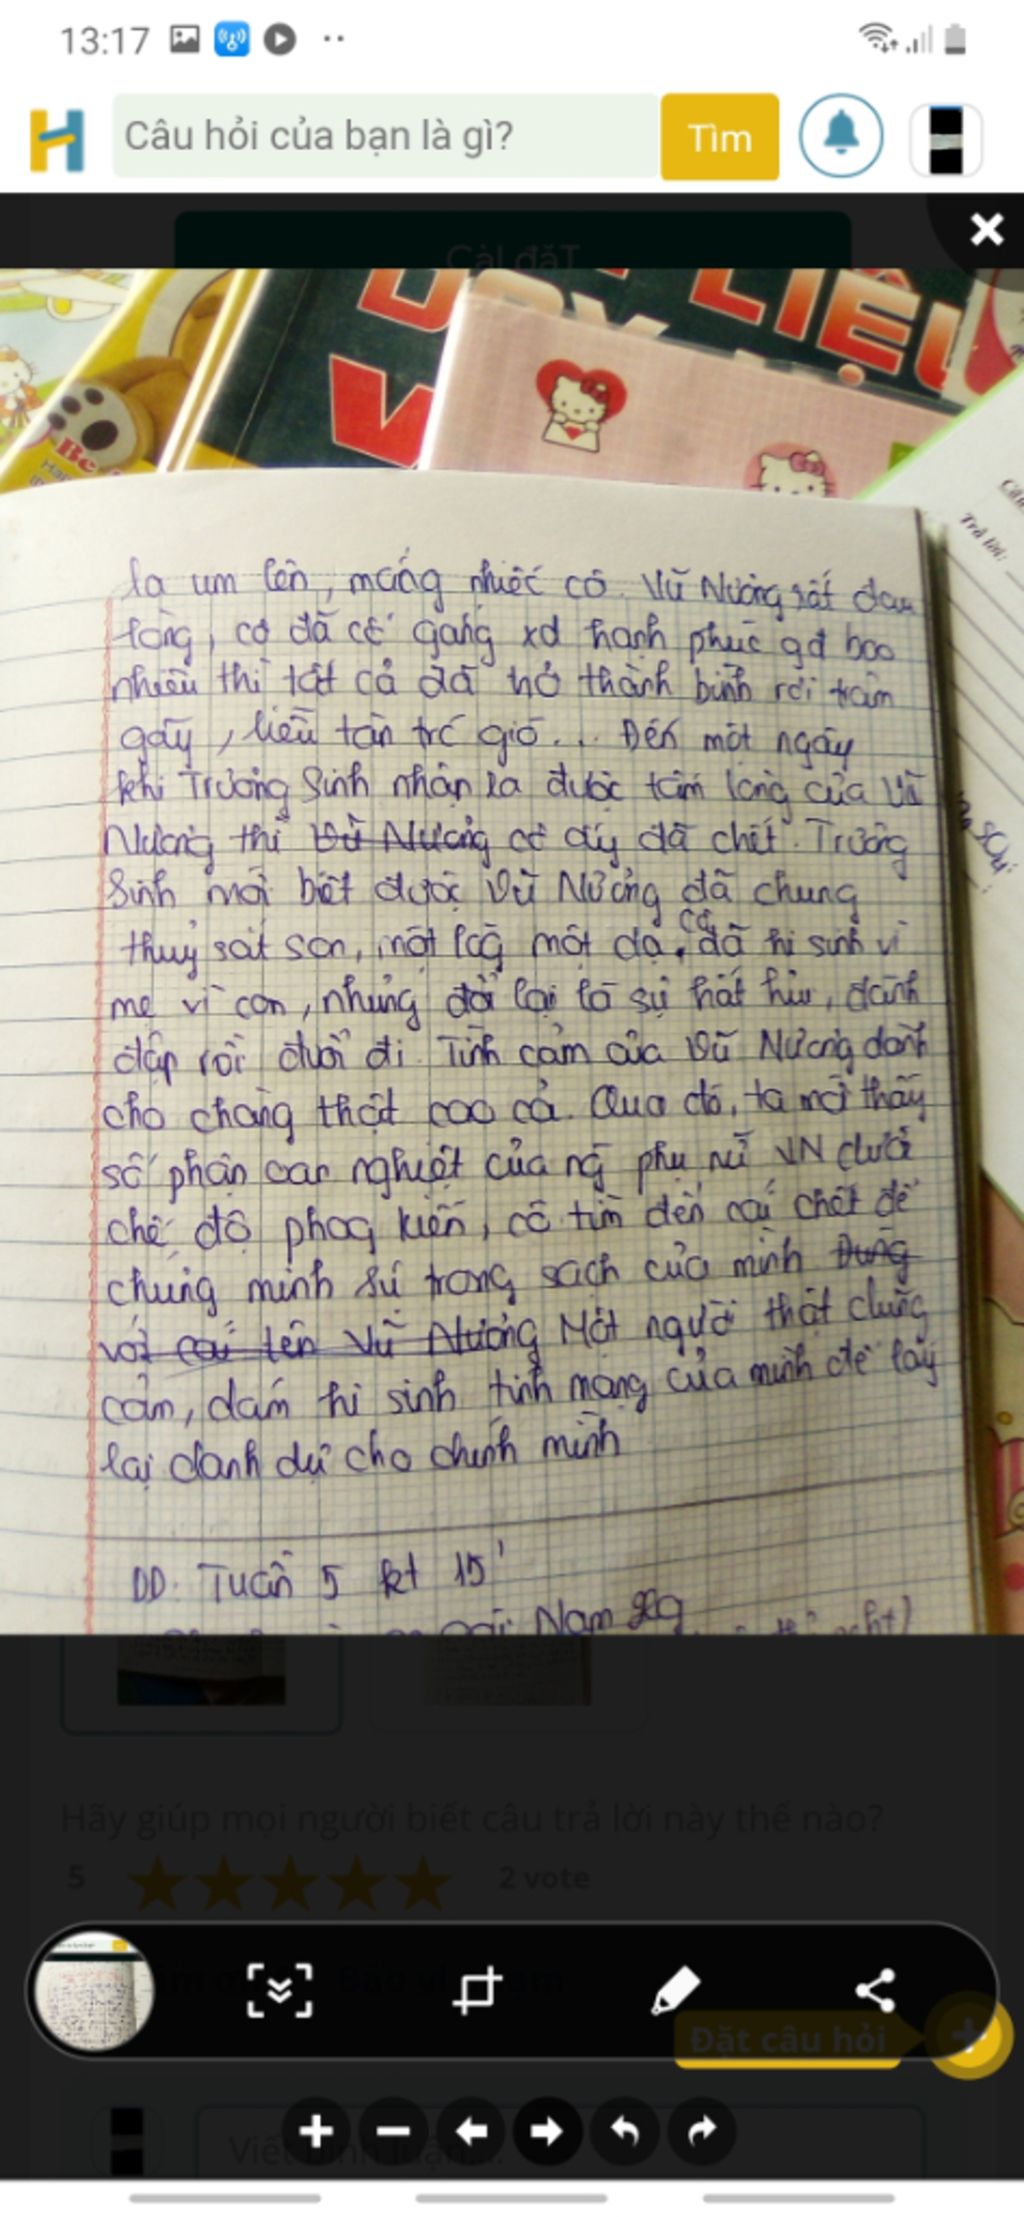 13:17
Câu hỏi của bạn là gì?
Tìm
Cài đặt
LIỆU
V
Be
Trả lời:
la um lên, mắng nhiếc cô. Vũ Nương rất đau
lòng, cô đã cố gắng xd hạnh phúc gđ bao
nhiêu thì tất cả đã trở thành bình rơi trâm
gãy, liễu tàn trc gió... Đến một ngày
khi Trương Sinh nhận ra được tấm lòng của Vũ
Nương thì Vũ Nương cô ấy đã chết. Trương
Sinh mới biết được Vũ Nương đã chung
thuỷ sắt son, một lòg một dạ. cô đã hi sinh vì
mẹ vì con, nhưng đổi lại là sự hắt hiu, đánh
đập rồi đuổi đi. Tình cảm của Vũ Nương dành
cho chàng thật cao cả. Qua đó, ta mới thấy
số phận oan nghiệt của ng phụ nữ VN dưới
chế độ phog kiến, cô tìm đến cái chết để
chứng minh sự trong sạch của mình Đúng
với cái tên Vũ Nương Một người thật dũng
cảm, dám hi sinh tính mạng của mình để lấy
lại danh dự cho chính mình
DD. Tuần 5 kt 15'
Nam
Hãy giúp mọi người biết câu trả lời này thế nào?
5
2 vote
Đặt câu hỏi
Viết bình luận...